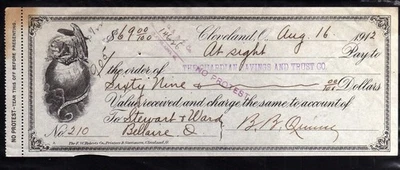 $69 00/100 Cleveland, O. Aug 16 1912
At sight Pay to
the order of THE GUARDIAN SAVINGS AND TRUST CO.
NO PROTEST
Sixty Nine & 00/100 Dollars
Value received and charge the same to account of
To Stewart & Ward B. B. Quinn
No 210 Bellaire O
NO PROTEST - TEAR THIS OFF BEFORE PRESENTING.